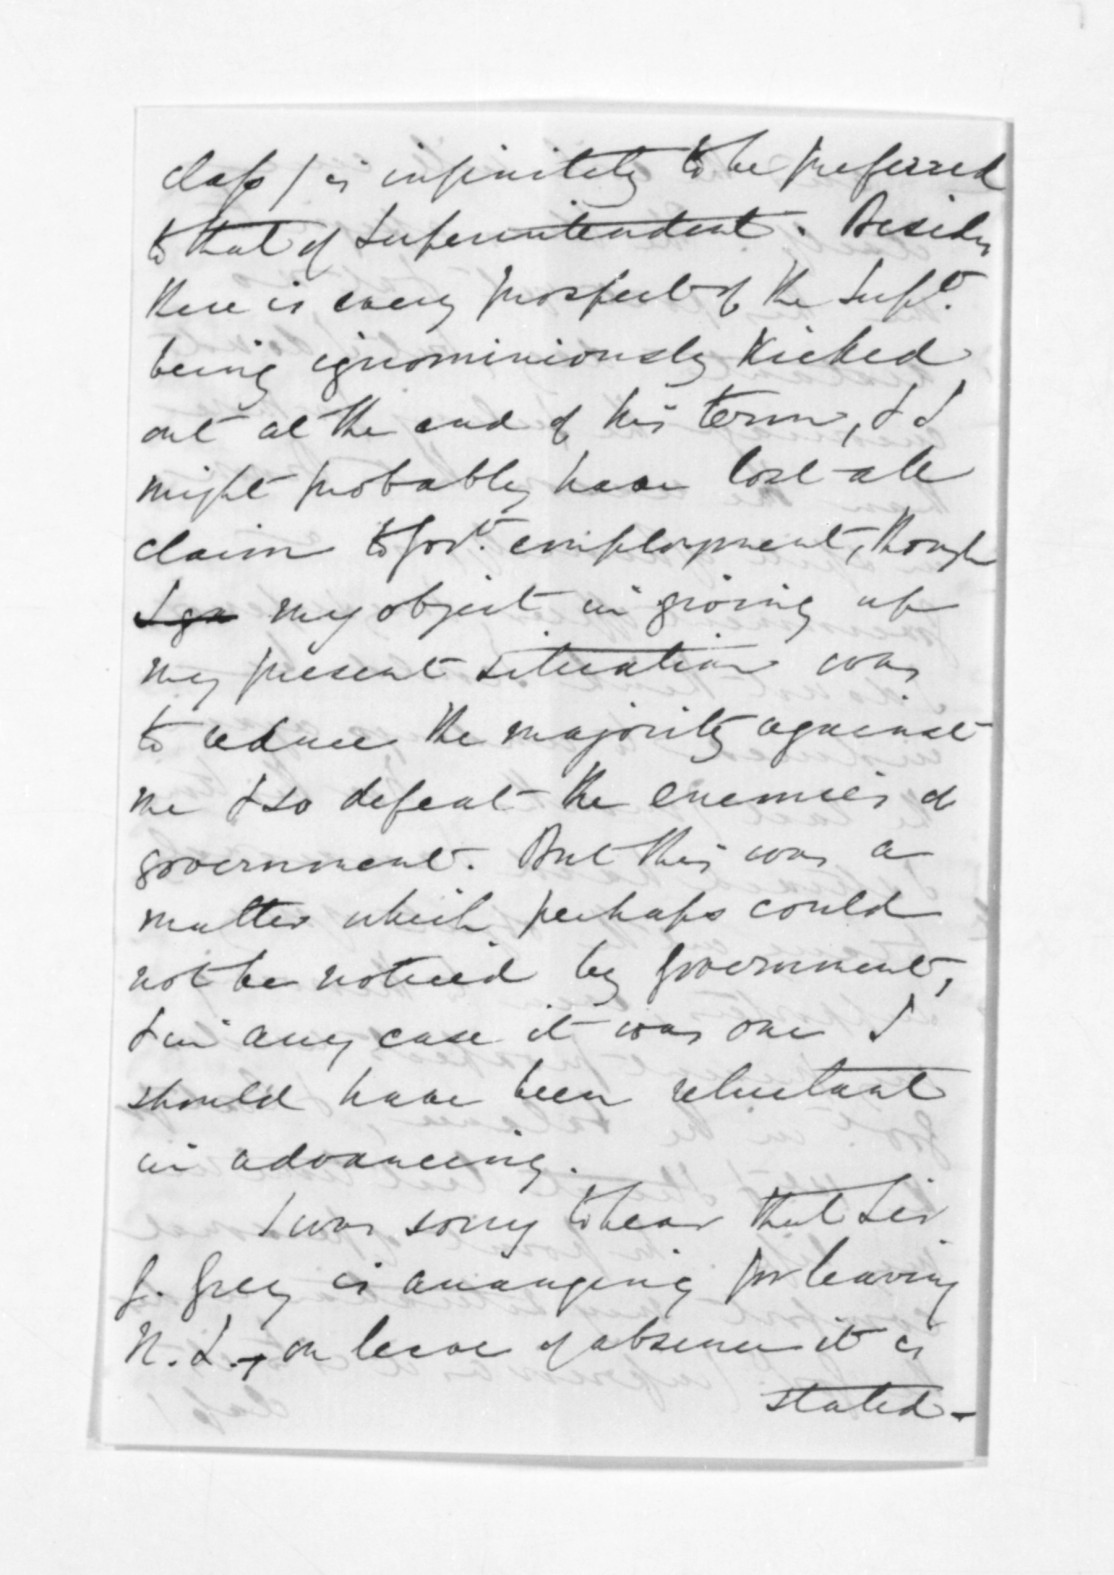 class) is infinitely to be preferred
to that of Superintendent. Besides
there is every prospect of the Supt.
being ignominiously kicked
out at the end of his term, & I
might probably have lost all
claim to Govt. employment, though
my object in giving up
my present situation was
to reduce the majority against
me & so defeat the enemies of
government. But this was a
matter which perhaps could
not be noticed by government,
& in any case it was one I
should have been reluctant
in advancing.
I was sorry to hear that Sir
G. Grey is arranging for leaving
N.Z., on leave of absence it is
stated -